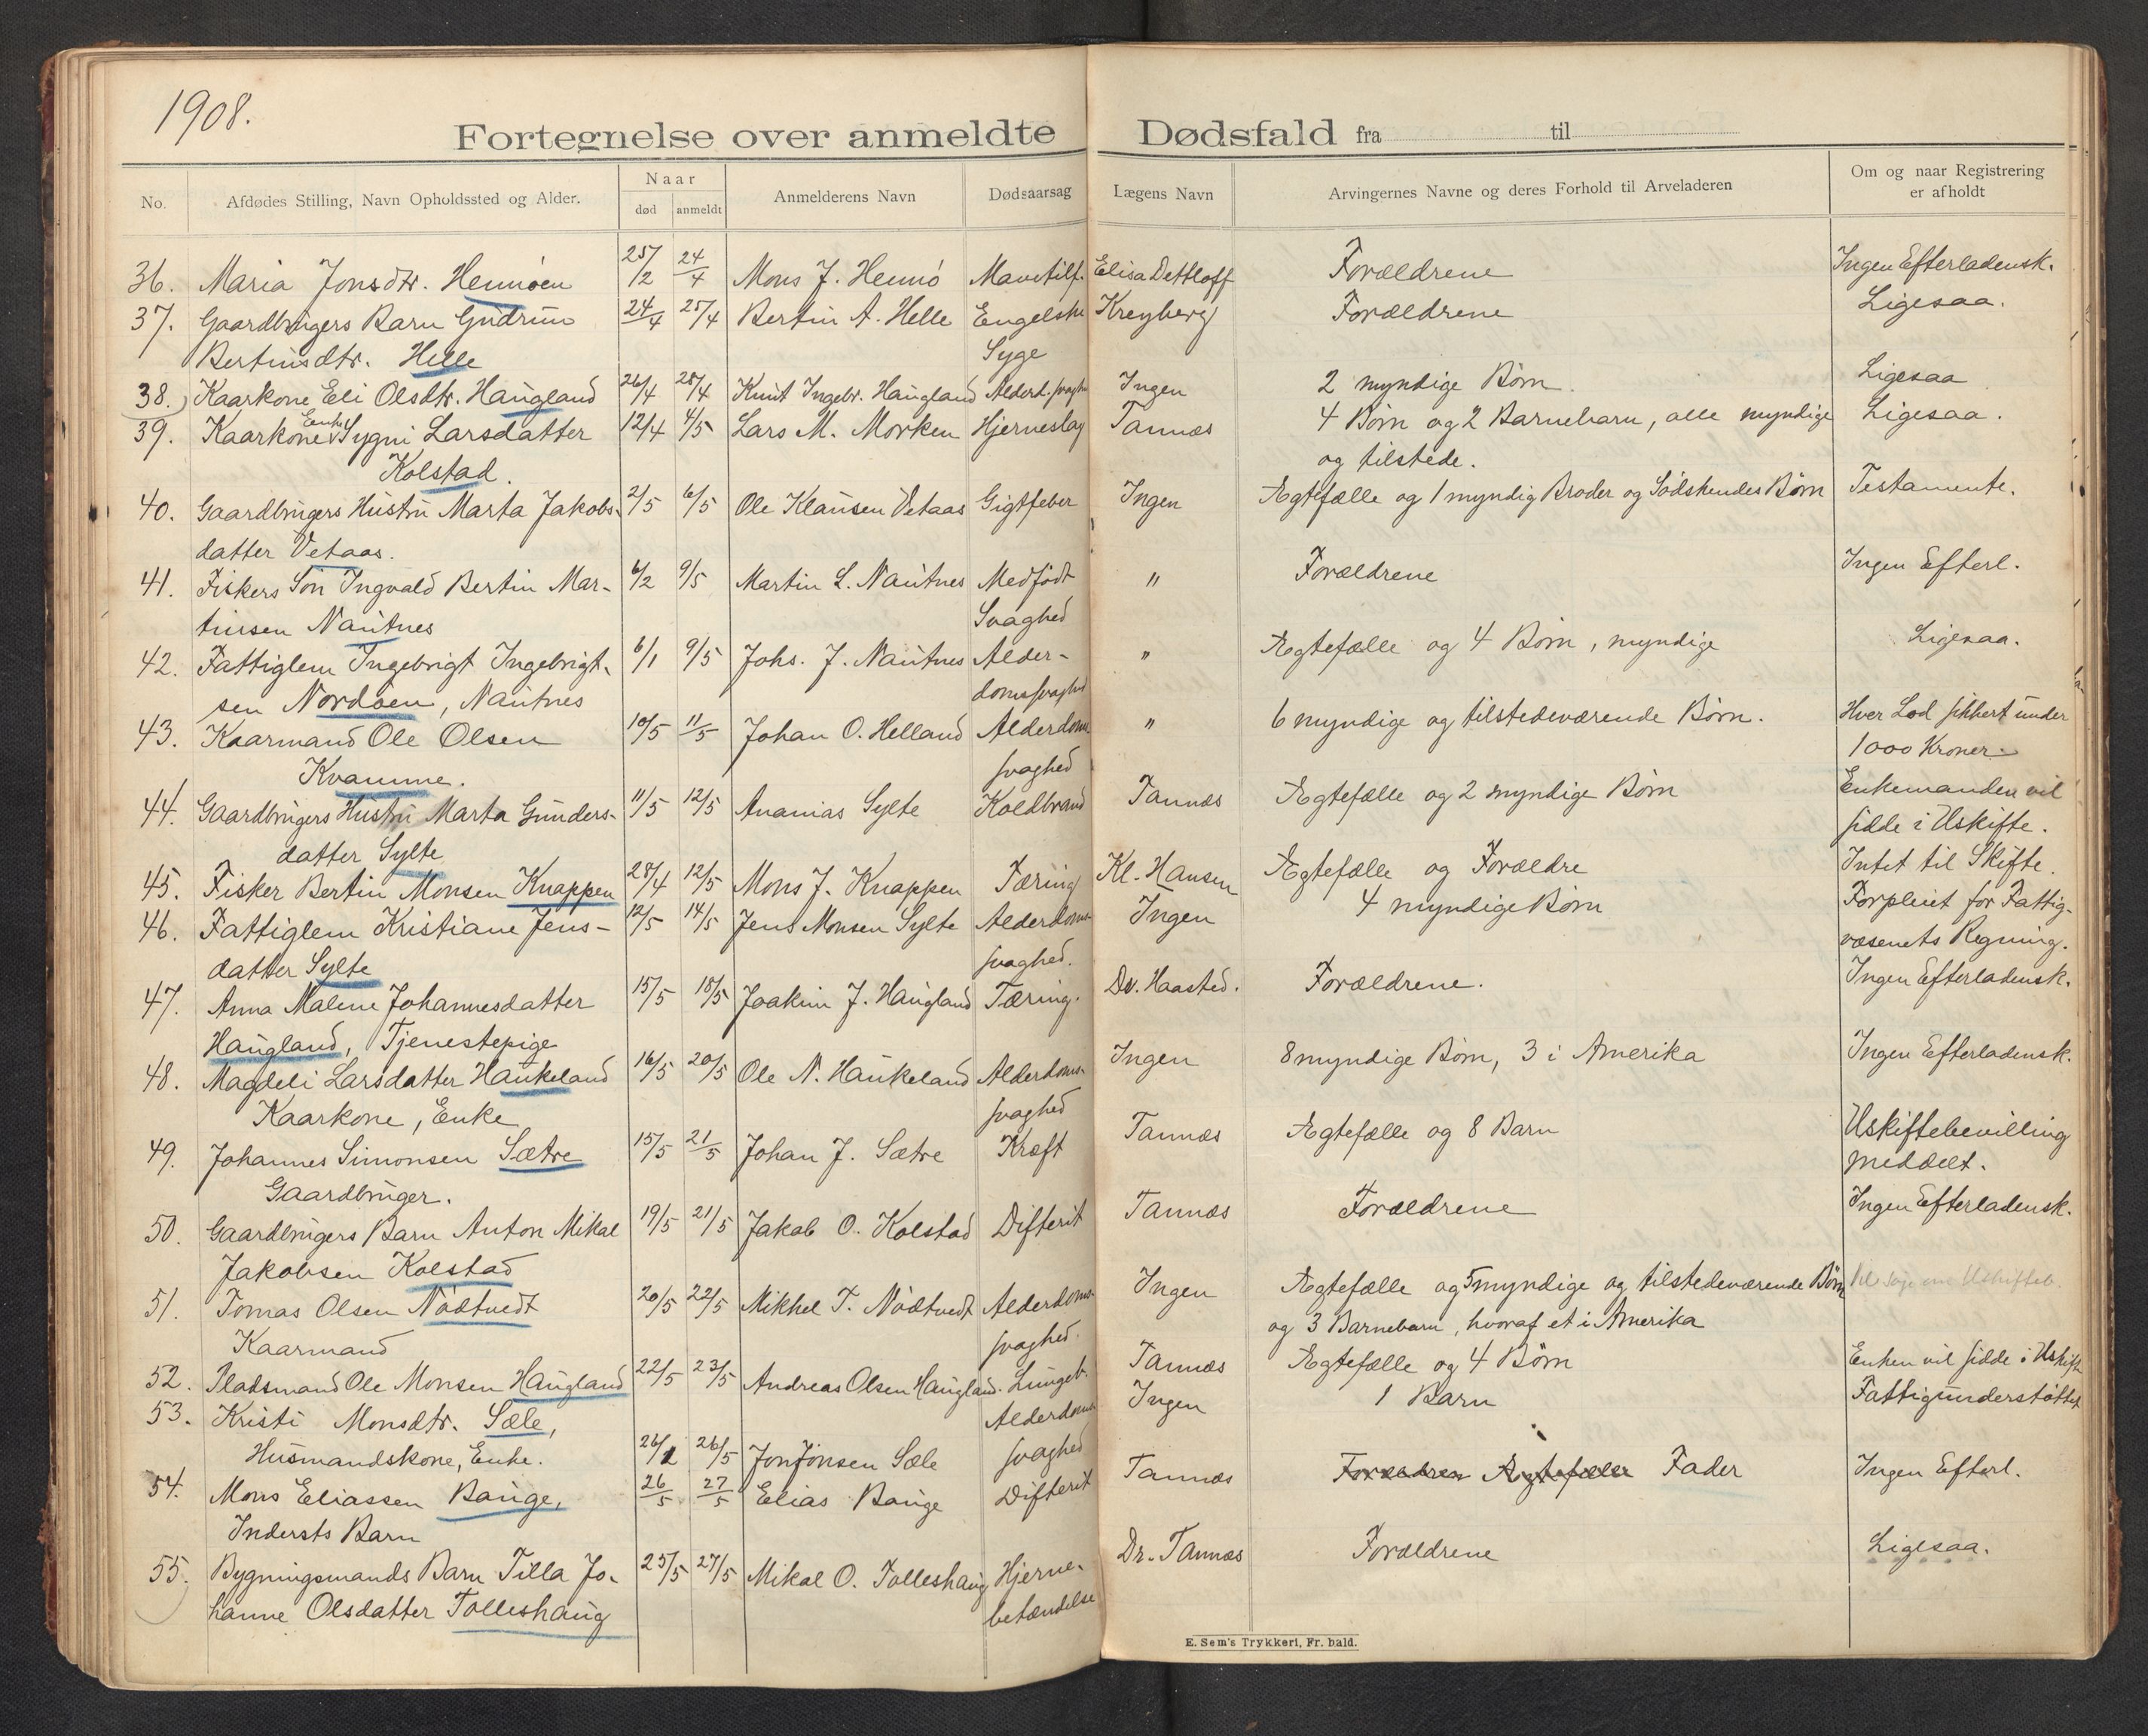 1908.
Fortegnelse over anmeldte Dødsfald fra til
No. Afdødes Stilling, Navn Opholdssted og Alder. Naar død anmeldt Anmelderens Navn Dødsaarsag Lægens Navn Arvingernes Navne og deres Forhold til Arveladeren Om og naar Registrering er afholdt
36. Maria Jonsdtr. Hennöen 25/2 24/4 Mons J. Hennö Mavetilf. Elisa Dethloff Forældrene Ingen Efterladensk.
37. Gaardbrugers Barn Gudrun 24/4 25/4 Bertin A. Helle Engelske Kreyberg Forældrene Ligesaa.
Bertinsdtr. Helle Syge
38. Kaarkone Eli Olsdtr. Haugland 26/4 28/4 Knut Ingebr. Haugland Alderd. svagh Ingen 2 myndige Børn. Ligesaa
39. Kaarkone Enke Sygni Larsdatter 12/4 4/5 Lars M. Morken Hjerneslag Tannæs 4 Børn og 2 Barnebarn, alle myndige Ligesaa.
Kolstad. og tilstede.
40. Gaardbrugers Hustru Marta Jakobs- 2/5 6/5 Ole Klausen Vetaas Gigtfeber Ingen Ægtefælle og 1 myndig Broder og Södskendes Børn Testamente.
datter Vetaas.
41. Fiskers Sön Ingvald Bertin Mar- 6/2 9/5 Martin L. Nautnes Medfödt " Forældrene Ingen Efterl.
tinsen Nautnes Svaghed
42. Fattiglem Ingebrigt Ingebrigt- 6/1 9/5 Johs. J. Nautnes Alder- " Ægtefælle og 4 Børn, myndige Ligesaa.
sen Nordöen, Nautnes domssvaghed
43. Kaarmand Ole Olsen 10/5 11/5 Johan O. Helland Alderdoms " 6 myndige og tilstedeværende Børn. Hver Lod sikkert under
Kvamme. svaghed 1000 Kroner.
44. Gaardbrugers Hustru Marta Gunders- 11/5 12/5 Ananias Sylte Koldbrand Tannæs Ægtefælle og 2 myndige Børn Enkemanden vil
datter Sylte sidde i Uskifte.
45. Fisker Bertin Monsen Knappen 28/4 12/5 Mons J. Knappen Tæring Kl. Hansen Ægtefælle og Forældre Intet til Skifte.
46. Fattiglem Kristiane Jens- 12/5 14/5 Jens Monsen Sylte Alderdoms Ingen 4 myndige Børn Forpleiet for Fattig-
datter Sylte svaghed. væsenets Regning.
47. Anna Malene Johannesdatter 15/5 18/5 Joakim J. Haugland Tæring. Dr. Haasted. Forældrene. Ingen Efterladensk.
Haugland, Tjenestepige
48. Magdeli Larsdatter Haukeland 16/5 20/5 Ole N. Haukeland Alderdoms- Ingen 8 myndige Børn, 3 i Amerika Ingen Efterladensk.
Kaarkone, Enke svaghed
49. Johannes Simonsen Sætre 15/5 21/5 Johan J. Sætre Kræft Tannæs Ægtefælle og 8 Barn Uskiftebevilling
Gaardbruger. meddelt.
50. Gaardbrugers Barn Anton Mikal 19/5 21/5 Jakob O. Kolstad Difterit Tannæs Forældrene Ingen Efterladensk.
Jakobsen Kolstad
51. Tomas Olsen Nödtvedt 20/5 22/5 Mikkel T. Nödtvedt Alderdoms- Ingen Ægtefælle og 5 myndige og tilstedeværende Børn
Kaarmand svaghed. og 3 Barnebarn, hvoraf et i Amerika
52. Pladsmand Ole Monsen Haugland 22/5 23/5 Andreas Olsen Haugland. Lungeb. Tannæs Ægtefælle og 4 Börn Enken vil sidde i Uskifte
53. Kristi Monsdtr. Sæle, Alderdoms Ingen 1 Barn Fattigunderstöttet
Husmandskone, Enke. 26/5 Jon Jonsen Sæle svaghed
54. Mons Eliassen Bauge, 26/5 27/5 Elias Bauge Difterit Tannæs Forældrene Ægtefælle Fader Ingen Efterl.
Indersts Barn
55. Bygningsmands Barn Tilla Jo- 25/5 27/5 Mikal O. Tolleshaug Hjerne- Dr. Tannæs Forældrene Ligesaa.
hanne Olsdatter Tolleshaug betændelse
E. Sem's Trykkeri, Fr. hald.